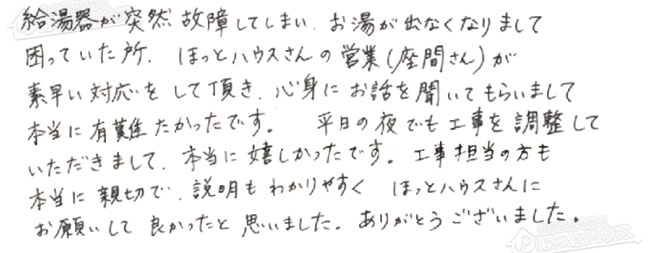 給湯器が突然故障してしまい、お湯が出なくなりまして
困っていた所、ほっとハウスさんの営業(座間さん)が
素早い対応をして頂き、心身にお話を聞いてもらいまして
本当に有難たかったです。 平日の夜でも工事を調整して
いただきまして、本当に嬉しかったです。工事担当の方も
本当に親切で、説明もわかりやすく ほっとハウスさんに
お願いして良かったと思いました。ありがとうございました。